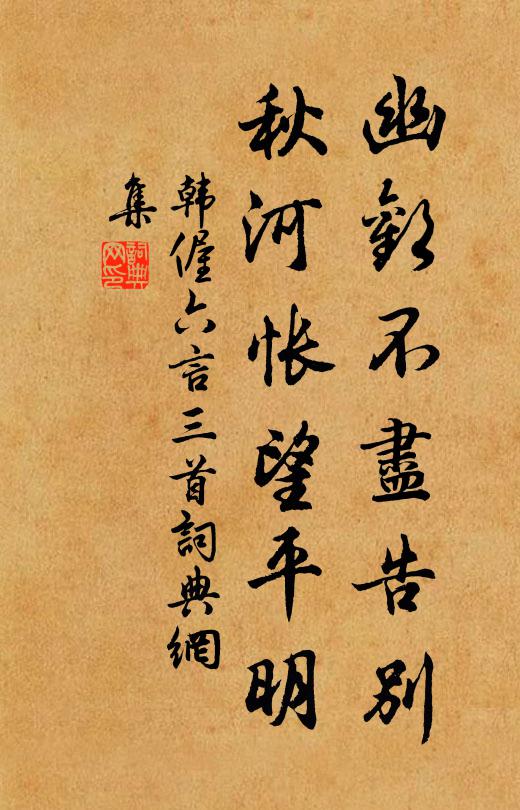 幽歡不盡告別
秋河悵望平明
韓偓六言三首詞典網
集
詞典网印